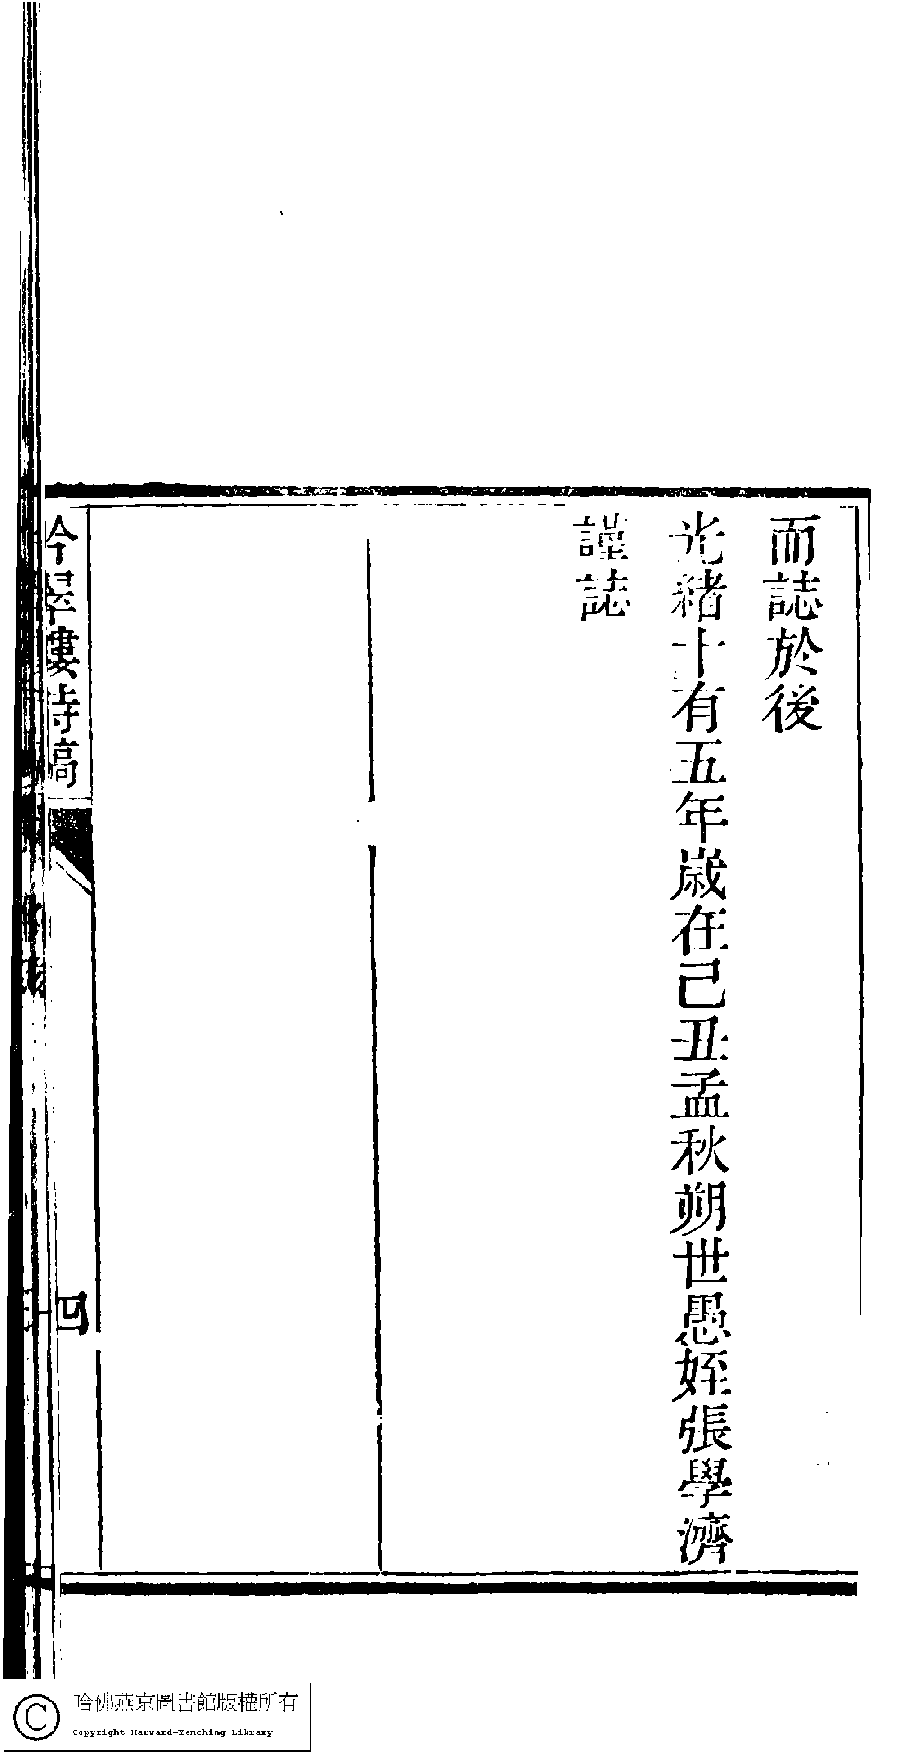 而誌於後
光緒十有五年歲在己丑孟秋朔世愚姪張學濟
謹誌
吟翠樓詩稿
四
哈佛燕京圖書館版權所有
Copyright Harvard-Yenching Library